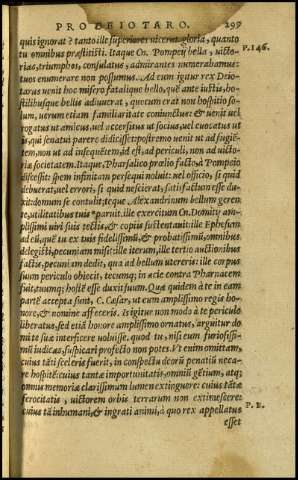 PRO DEIOTARO. 299
quis ignorat? tanto ille superiores vicerat gloria, quanto
tu omnibus præstitisti. itaque Cn. Pompeij bella, victo-
rias, triumphos, consulatus, admirantes numerabamus:
tuos enumerare non possumus. Ad eum igitur rex Deio-
tarus venit hoc misero fatalique bello, quē ante iustis, ho-
stilibusque bellis adiuverat, quocum erat non hospitio so-
lum, verum etiam familiaritate coniunctus: & venit vel
rogatus ut amicus, vel accersitus ut socius, vel evocatus ut
is, qui senatui parere didicisset: postremo venit ut ad fugiē-
tem, non ut ad insequētem, id est, ad periculi, non ad victo-
riæ societatem. Itaque, Pharsalico prælio facto, à Pompeio
discessit: spem infinitam persequi noluit: vel officio, si quid
debuerat, vel errori, si quid nescierat, satisfactum esse du-
xit: domum se contulit; teque Alexandrinum bellum geren
te, utilitatibus tuis paruit. ille exercitum Cn. Domitij am-
plissimi viri suis tectis, & copijs sustentavit: ille Ephesum
ad eū, quē tu ex tuis fidelissimū, & probatissimū, omnibus
delegisti, pecuniam misit: ille iterum, ille tertio auctionibus
factis, pecuniam dedit, qua ad bellum uterere: ille corpus
suum periculo obiecit, tecumq; in acie contra Pharnacem
fuit, tuumq; hostē esse duxit suum. Quæ quidem à te in eam
partē accepta sunt, C. Cæsar, ut eum amplissimo regis ho-
nore, & nomine affeceris. Is igitur non modo à te periculo
liberatus, sed etiā honore amplissimo ornatus, arguitur do
mi te suæ interficere voluisse. quod tu, nisi eum furiosissi-
mū iudicas, suspicari profecto non potes. Vt enim omittam,
cuius tāti sceleris fuerit, in conspectu deorū penatiū neca-
re hospitē: cuius tantæ importunitatis, omniū gētium, atq;
omniū memoriæ clarissimum lumen extinguere: cuius tātæ
ferocitatis, victorem orbis terrarum non extimescere:
cuius tā inhumani, & ingrati animi, à quo rex appellatus
esset
P. 146.
P. B.